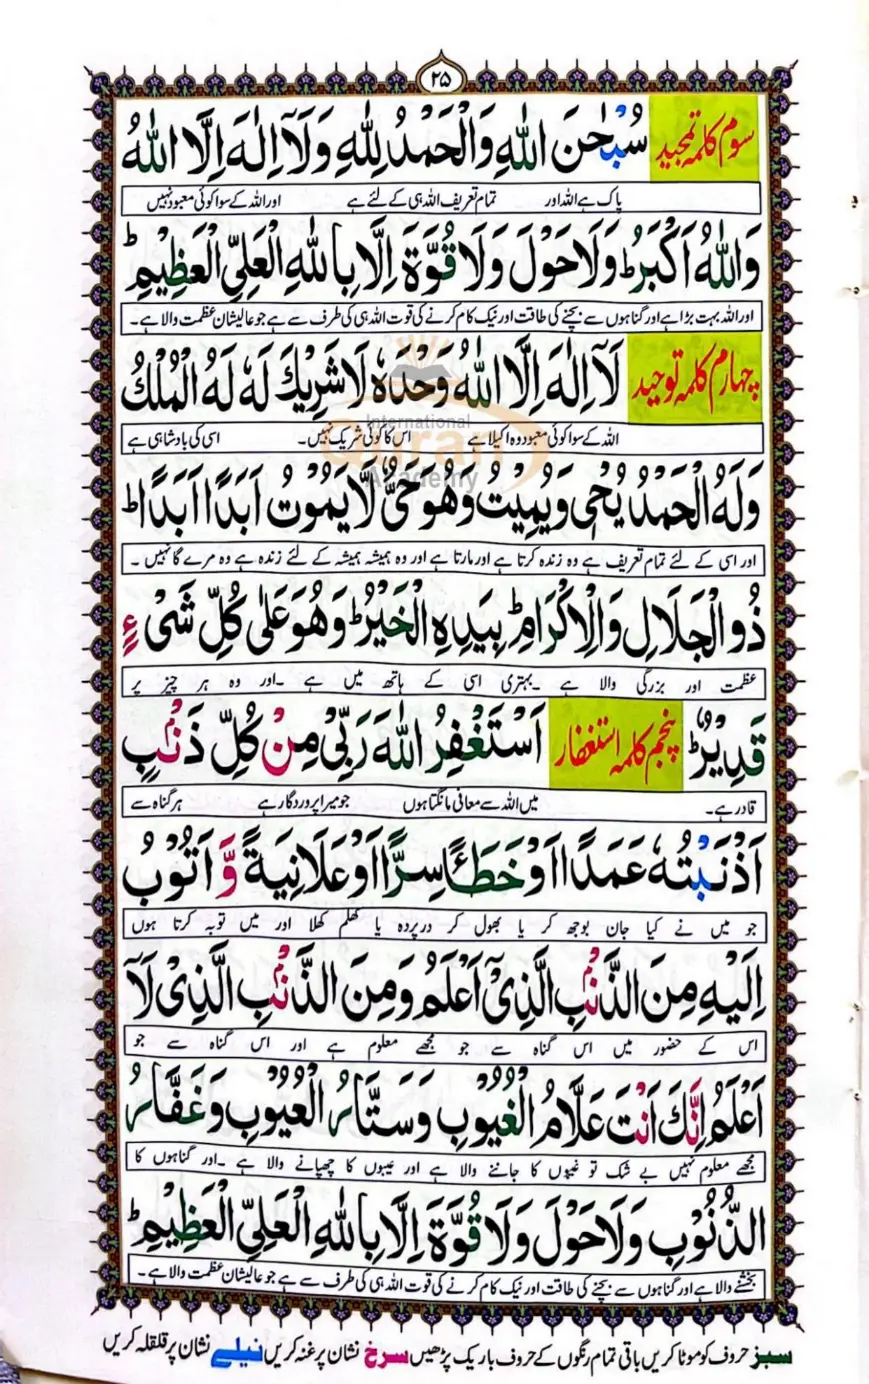 ۲۵
سوم کلمہ تمجید سُبْحٰنَ اللهِ وَالْحَمْدُ لِلّٰهِ وَلَآ اِلٰهَ اِلَّا اللهُ
پاک ہے اللہ اور تمام تعریف اللہ ہی کے لئے ہے اور اللہ کے سوا کوئی معبود نہیں
وَاللهُ اَكْبَرُ ؕ وَلَا حَوْلَ وَلَا قُوَّةَ اِلَّا بِاللهِ الْعَلِيِّ الْعَظِيْمِ ؕ
اور اللہ بہت بڑا ہے اور گناہوں سے بچنے کی طاقت اور نیک کام کرنے کی قوت اللہ ہی کی طرف سے ہے جو عالیشان عظمت والا ہے۔
چہارم کلمہ توحید لَآ اِلٰهَ اِلَّا اللهُ وَحْدَهٗ لَا شَرِيْكَ لَهٗ لَهُ الْمُلْكُ
اللہ کے سوا کوئی معبود وہ اکیلا ہے اس کا کوئی شریک نہیں۔ اسی کی بادشاہی ہے
International Quran Academy
وَلَهُ الْحَمْدُ يُحْيٖ وَيُمِيْتُ وَهُوَ حَيٌّ لَّا يَمُوْتُ اَبَدًا اَبَدًا ؕ
اور اسی کے لئے تمام تعریف ہے وہ زندہ کرتا ہے اور مارتا ہے اور وہ ہمیشہ ہمیشہ کے لئے زندہ ہے وہ مرے گا نہیں ۔
ذُو الْجَلَالِ وَالْاِكْرَامِ ؕ بِيَدِهِ الْخَيْرُ ؕ وَهُوَ عَلٰى كُلِّ شَيْءٍ
عظمت اور بزرگی والا ہے ۔بہتری اسی کے ہاتھ میں ہے ۔اور وہ ہر چیز پر
قَدِيْرٌ ؕ پنجم کلمہ استغفار اَسْتَغْفِرُ اللهَ رَبِّيْ مِنْ كُلِّ ذَنْۢبٍ
قادر ہے۔ میں اللہ سے معافی مانگتا ہوں جو میرا پروردگار ہے ہر گناہ سے
اَذْنَبْتُهٗ عَمَدًا اَوْ خَطَأً سِرًّا اَوْ عَلَانِيَةً وَّ اَتُوْبُ
جو میں نے کیا جان بوجھ کر یا بھول کر درپردہ یا کھلم کھلا اور میں توبہ کرتا ہوں
اِلَيْهِ مِنَ الذَّنْۢبِ الَّذِيْٓ اَعْلَمُ وَمِنَ الذَّنْۢبِ الَّذِيْ لَآ
اس کے حضور میں اس گناہ سے جو مجھے معلوم ہے اور اس گناہ سے جو
اَعْلَمُ اِنَّكَ اَنْتَ عَلَّامُ الْغُيُوْبِ وَسَتَّارُ الْعُيُوْبِ وَغَفَّارُ
مجھے معلوم نہیں بے شک تو غیبوں کا جاننے والا ہے اور عیبوں کا چھپانے والا ہے ۔اور گناہوں کا
الذُّنُوْبِ وَلَا حَوْلَ وَلَا قُوَّةَ اِلَّا بِاللهِ الْعَلِيِّ الْعَظِيْمِ ؕ
بخشنے والا ہے اور گناہوں سے بچنے کی طاقت اور نیک کام کرنے کی قوت اللہ ہی کی طرف سے ہے جو عالیشان عظمت والا ہے۔
سبز حروف کو موٹا کریں باقی تمام رنگوں کے حروف باریک پڑھیں سرخ نشان پر غنہ کریں نیلے نشان پر قلقلہ کریں